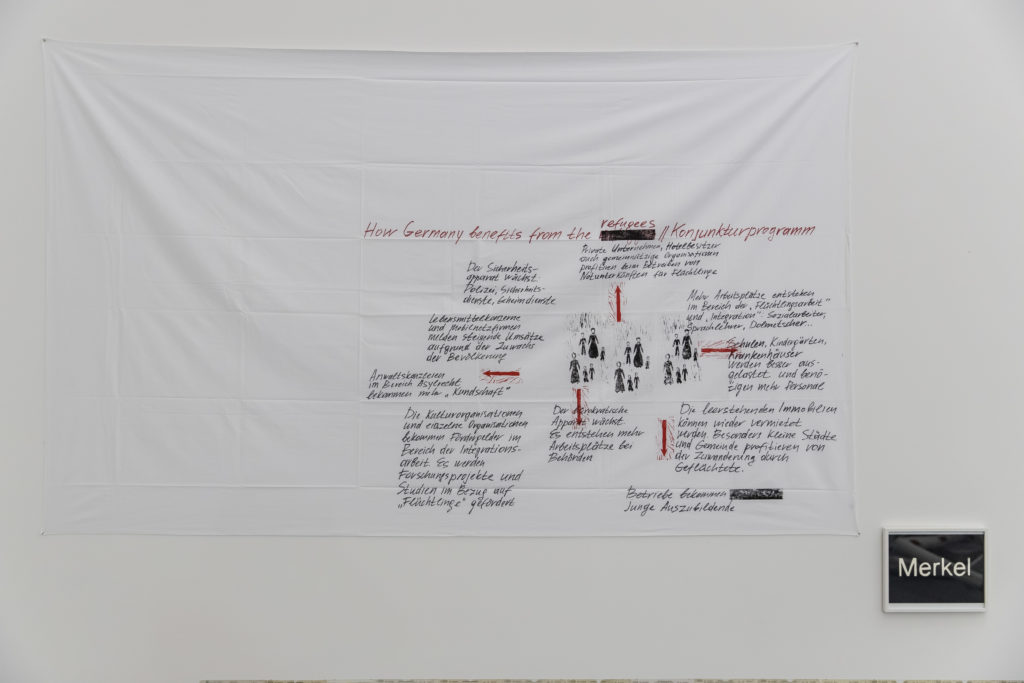 How Germany benefits from the refugees // Konjunkturprogramm
Private Unternehmen, Hotelbesitzer
auch gemeinnützige Organisationen
profitieren beim Betreiben von
Notunterkünften für Flüchtlinge
Der Sicherheits-
apparat wächst.
Polizei, Sicherheits-
dienste, Geheimdienste
Mehr Arbeitsplätze entstehen
im Bereich der „Flüchtlingsarbeit"
und „Integration": Sozialarbeiter,
Sprachlehrer, Dolmetscher...
Lebensmittelkonzerne
und Mobilnetzfirmen
melden steigende Umsätze
aufgrund der Zuwachs
der Bevölkerung
Schulen, Kindergärten,
Krankenhäuser
werden besser aus-
gelastet und benö-
tigen mehr Personal
Anwaltskanzleien
im Bereich Asylrecht
bekommen mehr „Kundschaft"
Die Kulturorganisationen
und einzelne Organisationen
bekommen Fördergelder im
Bereich der Integrations-
arbeit. Es werden
Forschungsprojekte und
Studien im Bezug auf
„Flüchtlinge" gefördert
Der
Apparat wächst.
Es entstehen mehr
Arbeitsplätze bei
Behörden
Die leerstehenden Immobilien
können wieder vermietet
werden. Besonders kleine Städte
und Gemeinde profitieren von
der Zuwanderung durch
Geflüchtete.
Betriebe bekommen
junge Auszubildende
Merkel